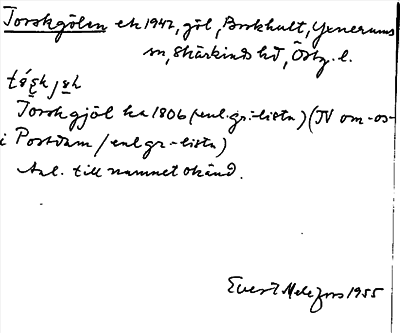 Torskgölen ek 1942, göl, Borkhult, Yxnerums
sn, Skärkinds hd, Östg. l.
Torskgjöl ka 1806 (enl. gr.-lista) (TV om -os-
i Postdam / enl gr-lista)
Anl. till namnet okänd.
Evert Melefors 1955